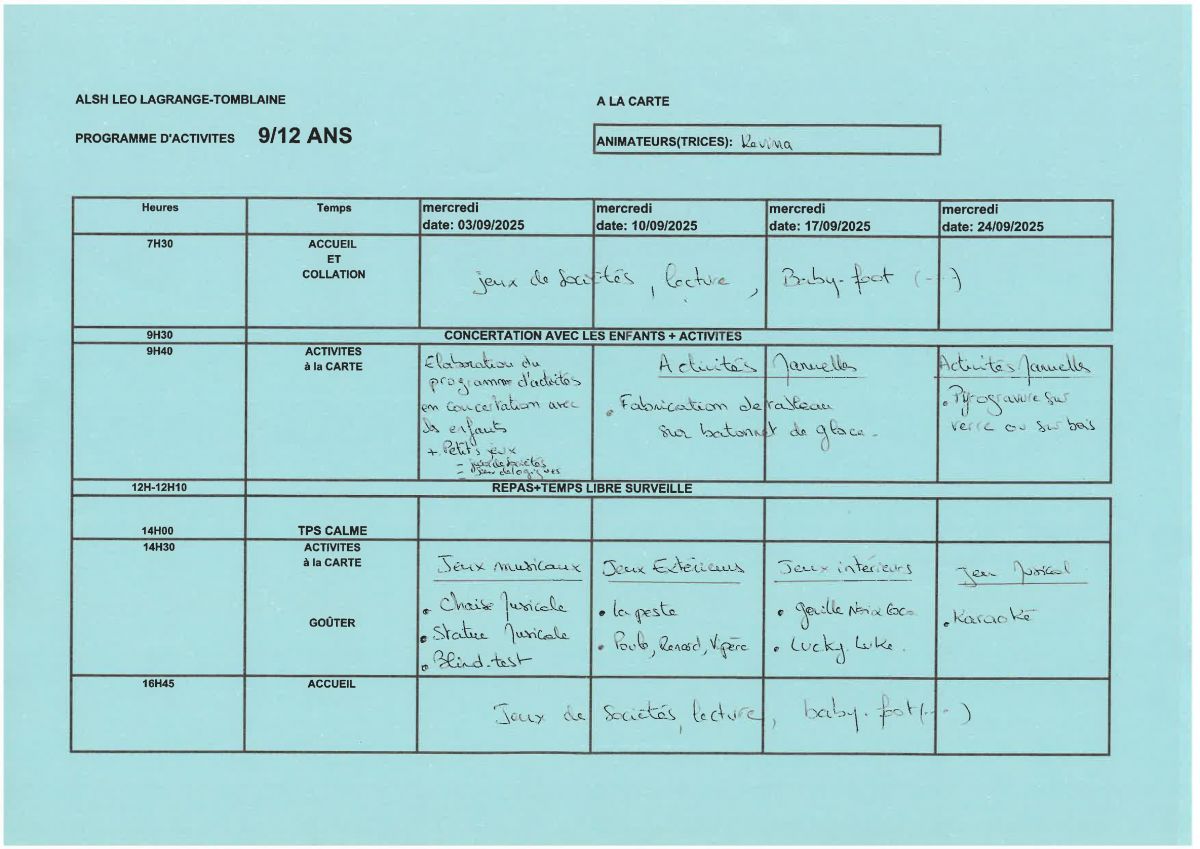 ALSH LEO LAGRANGE-TOMBLAINE
A LA CARTE
PROGRAMME D'ACTIVITES 9/12 ANS
ANIMATEURS(TRICES): Kevina
Heures
Temps
mercredi
date: 03/09/2025
mercredi
date: 10/09/2025
mercredi
date: 17/09/2025
mercredi
date: 24/09/2025
7H30
ACCUEIL
ET
COLLATION
jeux de Sociétés, lecture, Baby-foot (---)
9H30
CONCERTATION AVEC LES ENFANTS + ACTIVITES
9H40
ACTIVITES
à la CARTE
Elaboration du
programme d'activités
en concertation avec
les enfants
+ Petits jeux
- jeux de sociétés
- jeux de logiques
Activités Manuelles
• Fabrication de
sur batonnet de glace.
Activités Manuelles
• Pyrogravure sur
verre ou sur bois
12H-12H10
REPAS+TEMPS LIBRE SURVEILLE
14H00
TPS CALME
14H30
ACTIVITES
à la CARTE
GOÛTER
Jeux musicaux
• Chaise Musicale
• Statue Musicale
• Blind-test
Jeux Extérieurs
• la peste
• Poule, Renard, Vipère
Jeux intérieurs
• Noix Coco
• Lucky Luke.
jeu Musical
• Karaoké
16H45
ACCUEIL
Jeux de Sociétés, lecture, baby-foot (---)